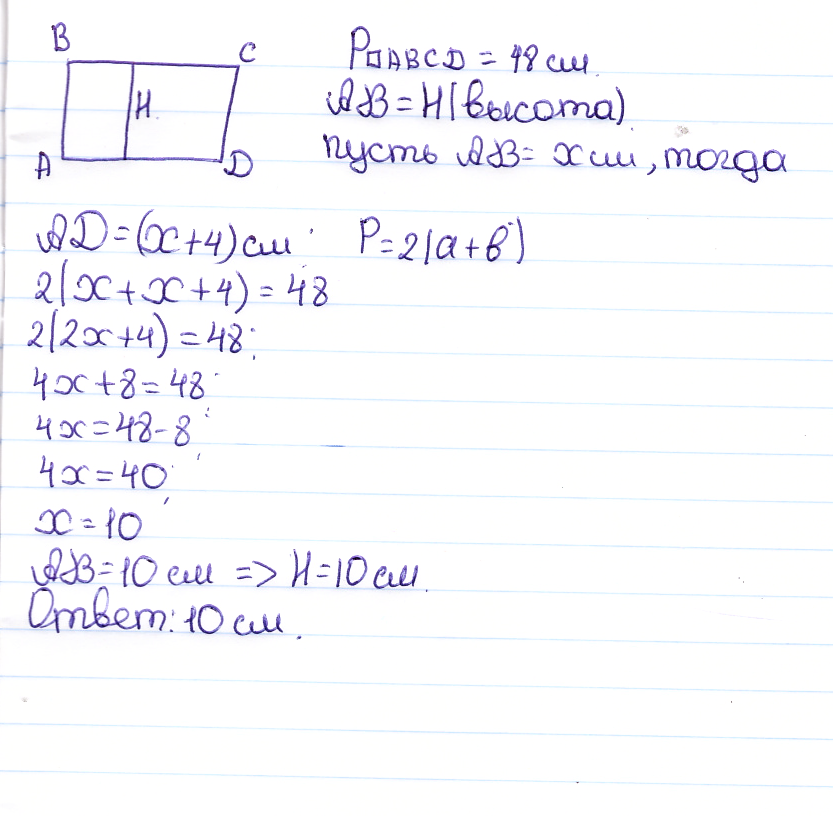 B
C
H
A
D
P▱ABCD = 48 см.
AB = H (высота)
пусть AB = x см, тогда
AD = (x+4) см. P = 2(a+b)
2(x+x+4) = 48
2(2x+4) = 48;
4x+8=48
4x=48-8
4x=40
x=10
AB=10 см => H=10 см.
Ответ: 10 см.